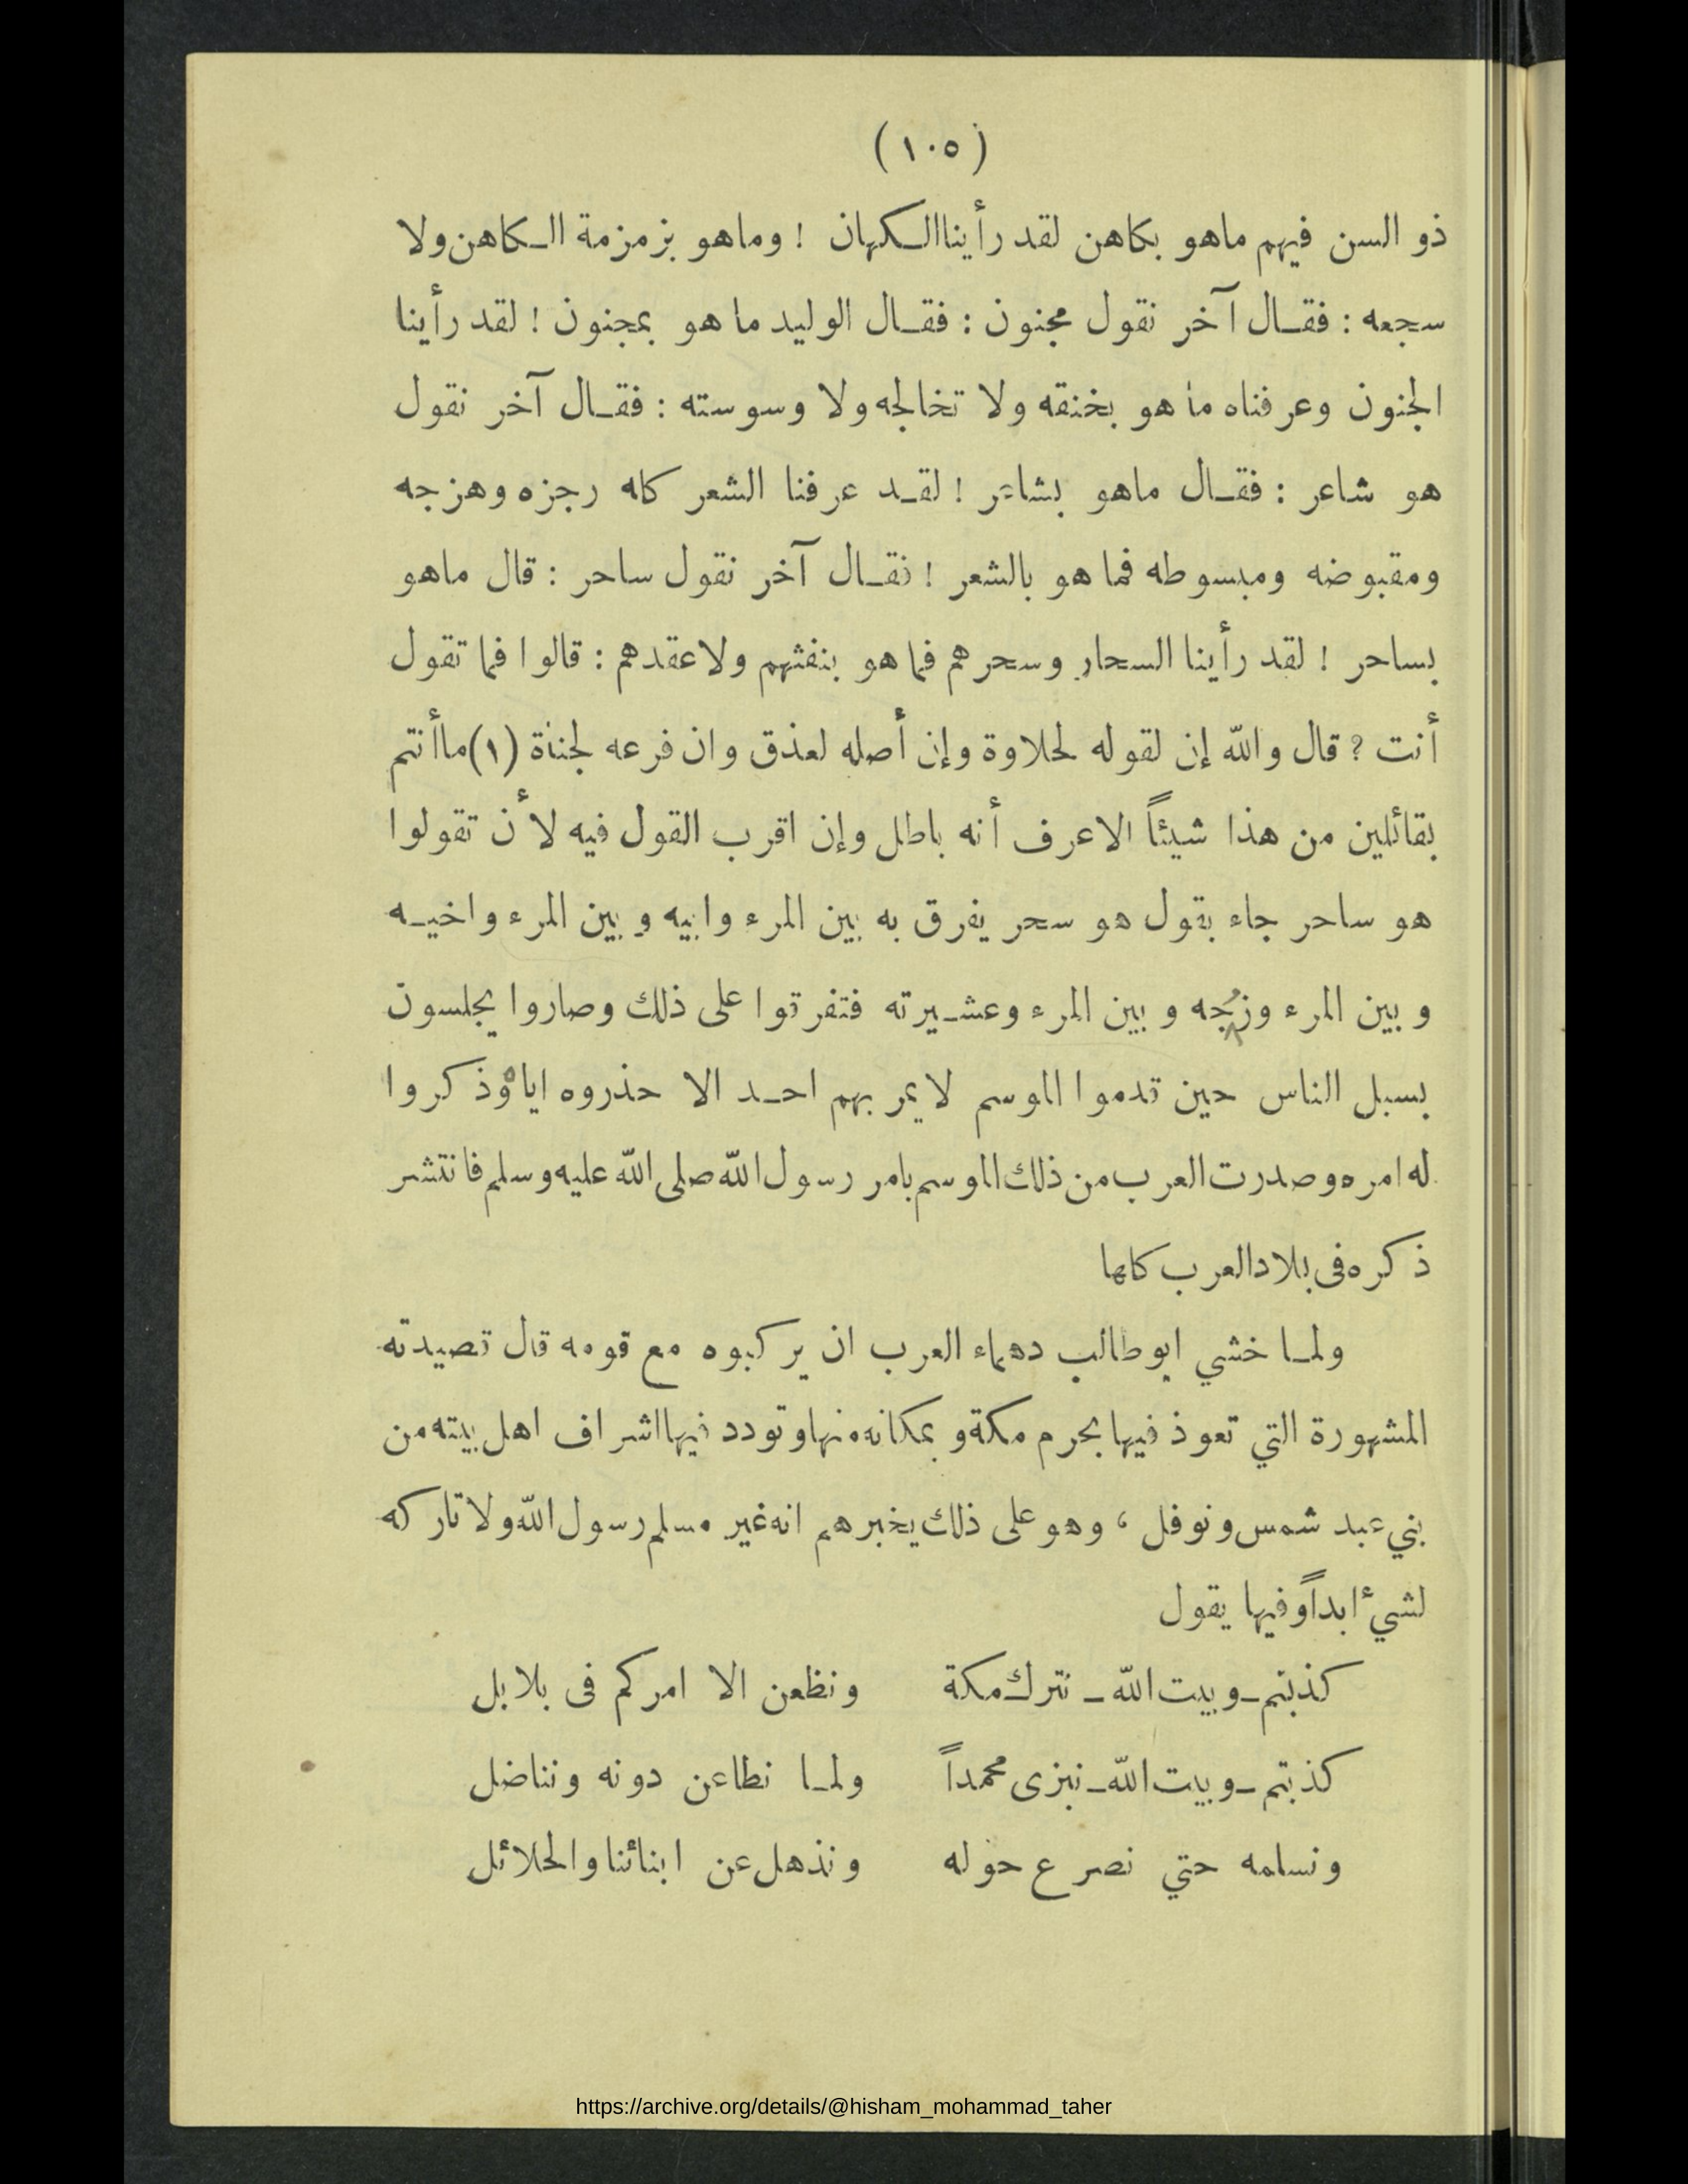 (١٠٥)
ذو السن فيهم ماهو بكاهن لقد رأينا الكهان ! وماهو بزمزمة الكاهن ولا
سجعه : فقال آخر نقول مجنون : فقال الوليد ما هو بمجنون ! لقد رأينا
الجنون وعرفناه ما هو بخنقه ولا تخالجه ولا وسوسته : فقال آخر نقول
هو شاعر : فقال ماهو بشاعر ! لقد عرفنا الشعر كله رجزه وهزجه
ومقبوضه ومبسوطه فما هو بالشعر ! فقال آخر نقول ساحر : قال ماهو
بساحر ! لقد رأينا السحار وسحرهم فما هو بنفثهم ولا عقدهم : قالوا فما تقول
أنت ? قال والله إن لقوله لحلاوة وإن أصله لعذق وان فرعه لجناة (١) ماأنتم
بقائلين من هذا شيئاً الا عرف أنه باطل وإن اقرب القول فيه لأن تقولوا
هو ساحر جاء بقول هو سحر يفرق به بين المرء وابيه وبين المرء واخيه
وبين المرء وزوجه وبين المرء وعشيرته فتفرقوا على ذلك وصاروا يجلسون
بسبل الناس حين قدموا الموسم لا يمر بهم احد الا حذروه اياه وذكروا
له امره وصدرت العرب من ذلك الموسم بامر رسول الله صلى الله عليه وسلم فانتشر
ذكره فى بلاد العرب كلها
ولما خشي ابو طالب دهماء العرب ان يركبوه مع قومه قال قصيدته
المشهورة التي تعوذ فيها بحرم مكة وبمكانه منها وتودد فيها اشراف اهل بيته من
بني عبد شمس ونوفل ، وهو على ذلك يخبرهم انه غير مسلم رسول الله ولا تاركه
لشيء ابداً وفيها يقول
كذبتم ــ وبيت الله ــ نترك مكة ونظعن الا امركم فى بلابل
كذبتم ــ وبيت الله ــ نبزى محمداً ولما نطاعن دونه ونناضل
ونسلمه حتي نصرع حوله ونذهل عن ابنائنا والحلائل
https://archive.org/details/@hisham_mohammad_taher